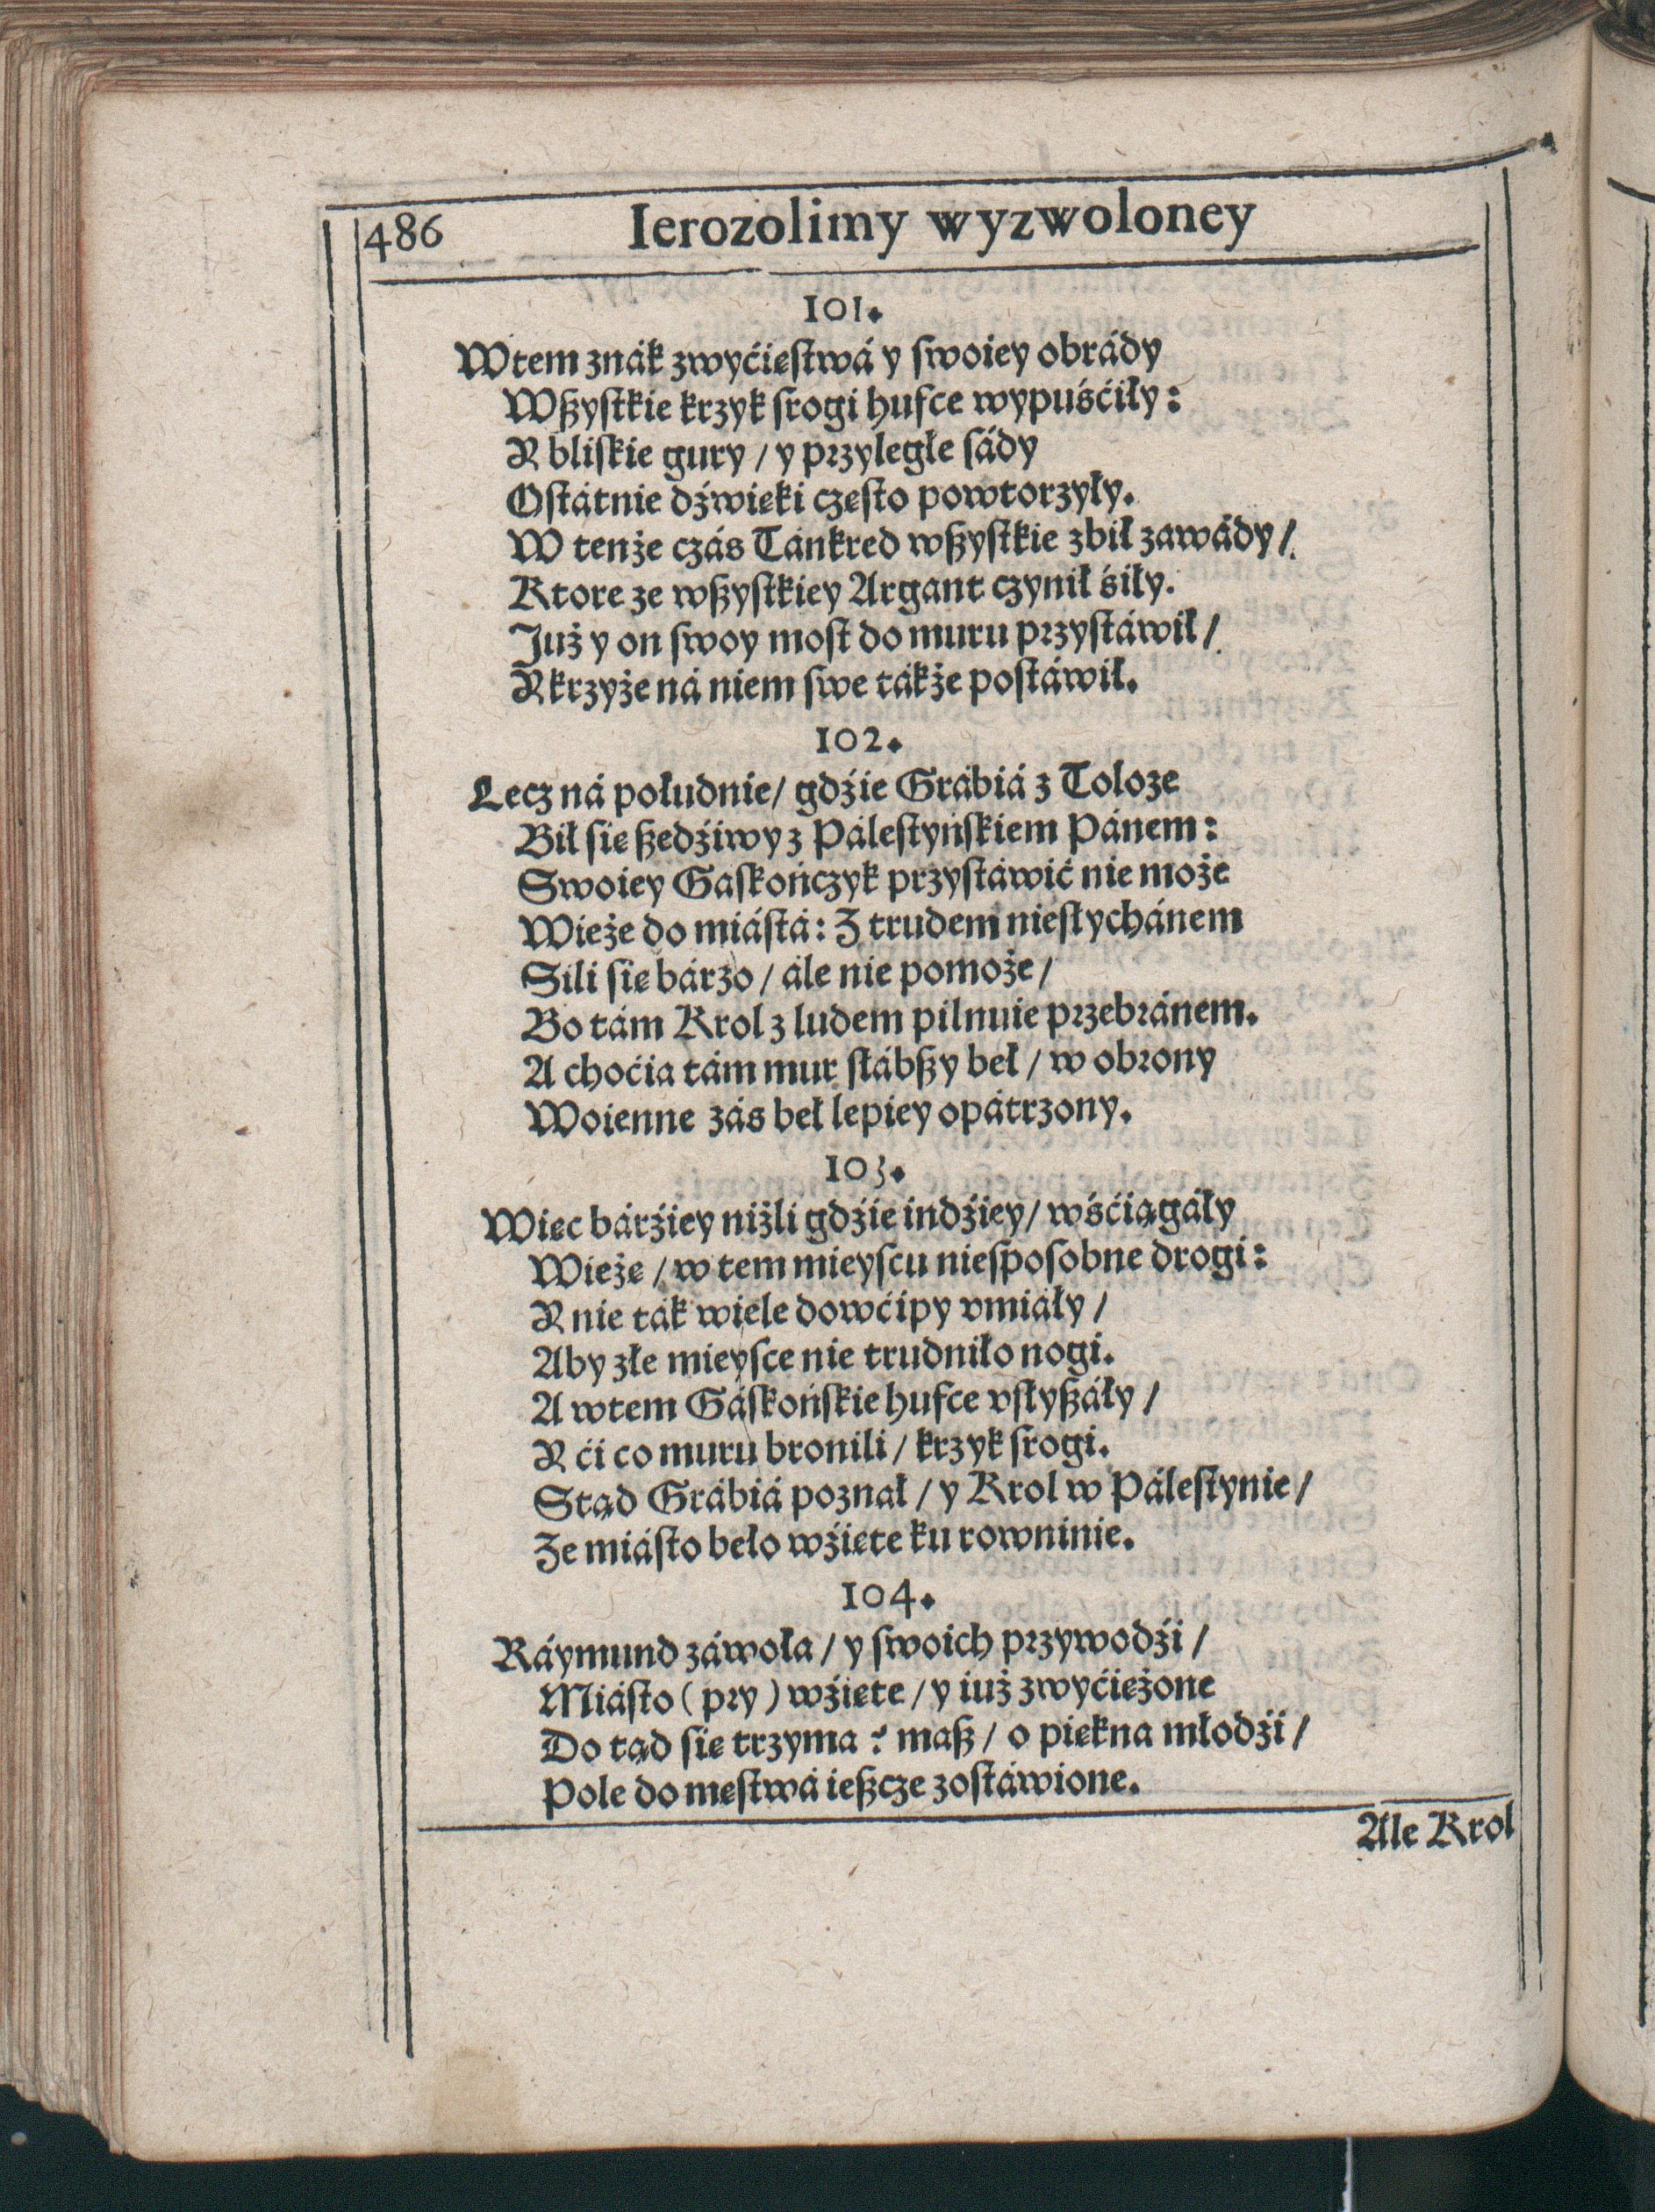 486 Ierozolimy wyzwoloney
101.
Wtem znák zwyćięstwá y swoiey obrády
Wszystkie krzyk srogi hufce wypuśćiły:
Y bliskie gury / y przyległe sády
Ostátnie dźwięki często powtorzyły.
W tenże czás Tánkred wszystkie zbił zawády /
Ktore ze wszystkiey Argant czynił śiły.
Już y on swoy most do muru przystáwił /
Y krzyże ná niem swe tákże postáwił.
102.
Lecz ná południe / gdźie Grábiá z Toloze
Bił się szedźiwy z Pálestyńskiem Pánem:
Swoiey Gaskończyk przystáwić nie może
Wieże do miástá: Z trudem niesłychánem
Sili się bárzo / ále nie pomoże /
Bo tám Krol z ludem pilnuie przebránem.
A choćia tám mur słábszy beł / w obrony
Woienne zás beł lepiey opátrzony.
103.
Więc bárźiey niżli gdźie indźiey / wśćiągáły
Wieże / w tem mieyscu niesposobne drogi:
Y nie ták wiele dowćipy vmiáły /
Aby złe mieysce nie trudniło nogi.
A wtem Gáskońskie hufce vsłyszáły /
Y ći co muru bronili / krzyk srogi.
Stąd Grábiá poznał / y Krol w Pálestynie /
Ze miásto beło wźięte ku rowninie.
104.
Ráymund záwoła / y swoich przywodźi /
Miásto (pry) wźięte / y iuż zwyćiężone
Do tąd się trzyma? masz / o piękna młodźi /
Pole do męstwá ieszcze zostáwione.
Ale Krol